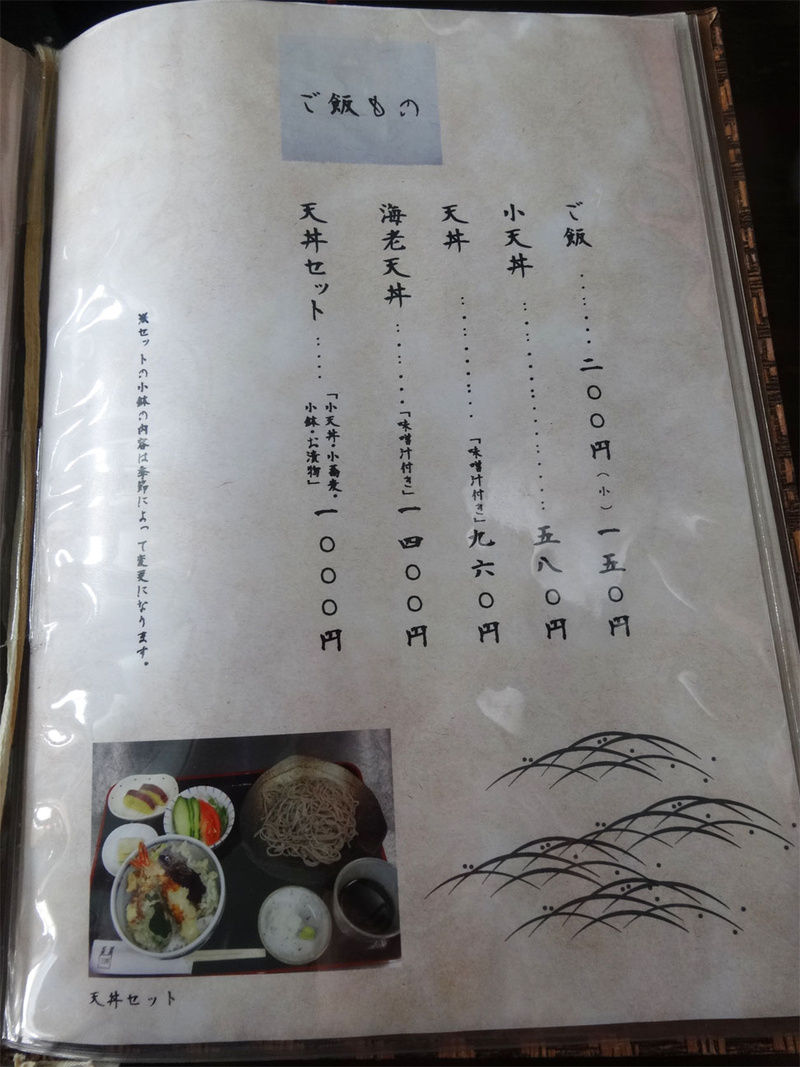 ご飯もの
ご飯・・・・・・・二〇〇円(小)一五〇円
小天丼・・・・・・・・・・・・・・・・五八〇円
天丼・・・・・・・・・・「味噌汁付き」九六〇円
海老天丼・・・・・・・「味噌汁付き」一四〇〇円
天丼セット・・・・・「小天丼・小蕎麦・
小鉢・お漬物」一〇〇〇円
※セットの小鉢の内容は季節によって変更になります。
天丼セット